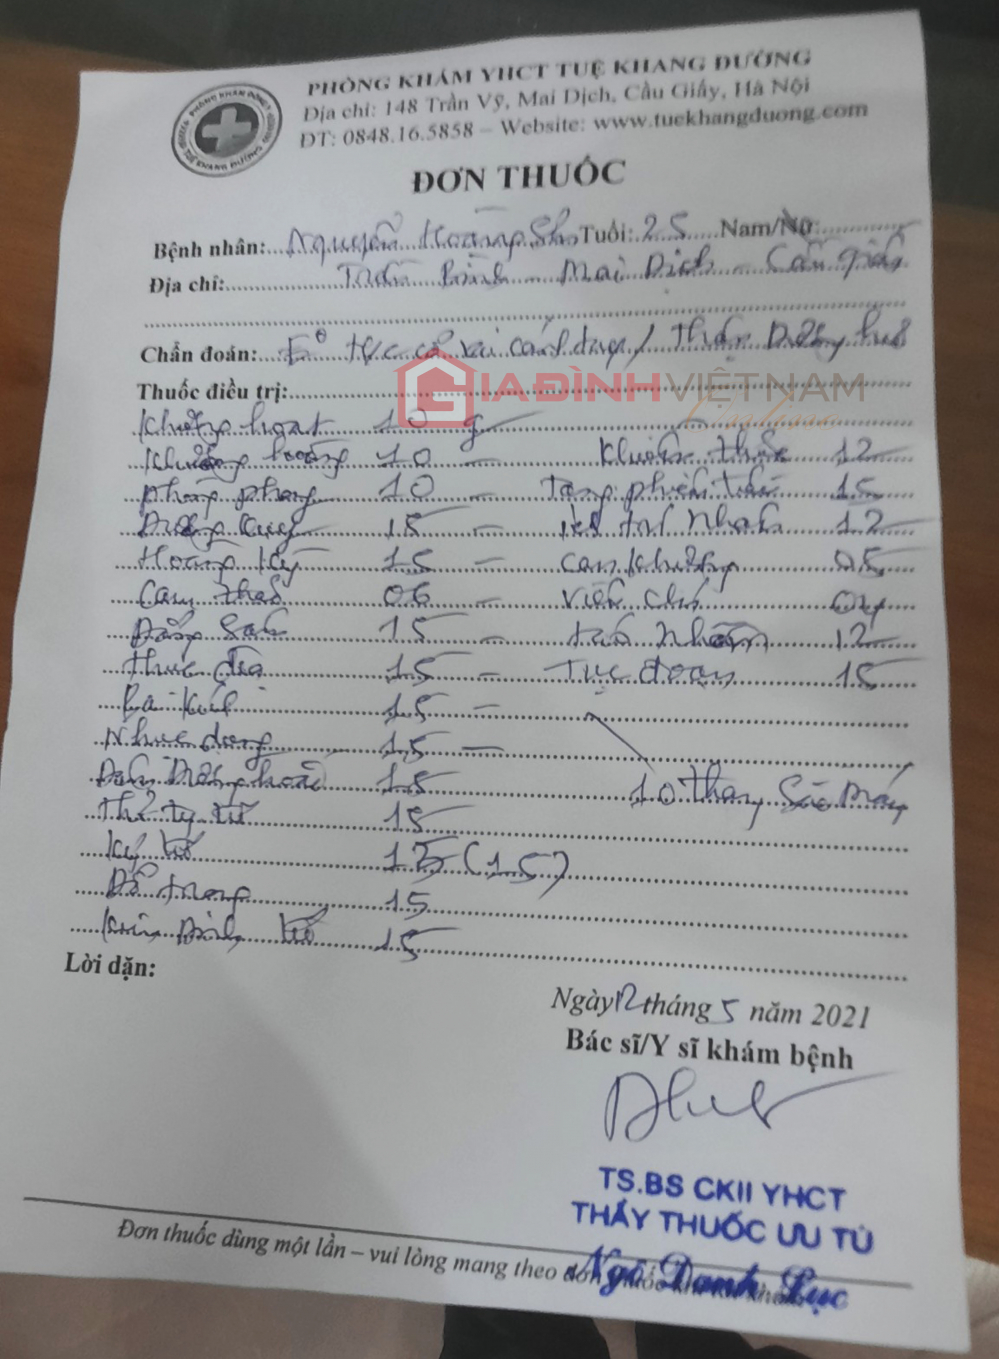 PHÒNG KHÁM YHCT TUỆ KHANG ĐƯỜNG
Địa chỉ: 148 Trần Vỹ, Mai Dịch, Cầu Giấy, Hà Nội
ĐT: 0848.16.5858 – Website: www.tuekhangduong.com
ĐƠN THUỐC
Bệnh nhân: Nguyễn Hoàng Tuổi: 25 Nam/Nữ:
Địa chỉ: Trần Bình - Mai Dịch - Cầu Giấy
Chẩn đoán: cổ vai cánh tay / Thận Dương hư
Thuốc điều trị:
GIAĐÌNHVIỆTNAM
Khương hoạt 10 g
Khương hoàng 10 - Khiếm thực 12
phòng phong 10 - 15
Đương quy 15 - ích trí Nhân 12
Hoàng Kỳ 15 - can Khương 05
Cam thảo 06 - viễn chí 04
Đẳng sâm 15 - táo Nhân 12
thục địa 15 - Tục đoạn 15
Ba Kích 15 -
Nhục dung 15 -
Dâm Dương hoắc 15 10 thang Sắc máy
Thỏ ty tử 15
Kỷ tử 15 (15)
Đỗ trọng 15
Kim Anh tử 15
Lời dặn:
Ngày 12 tháng 5 năm 2021
Bác sĩ/Y sĩ khám bệnh
TS.BS CKII YHCT
THẦY THUỐC ƯU TÚ
Đơn thuốc dùng một lần – vui lòng mang theo
Ngô Danh Lục